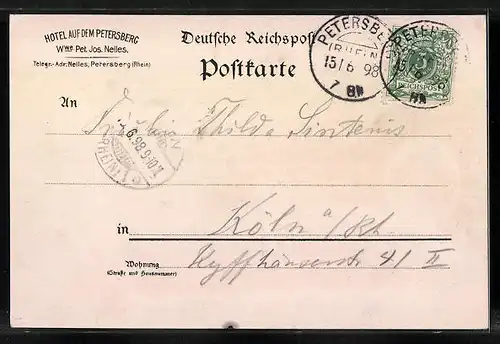 HOTEL AUF DEM PETERSBERG
Wwe Pet. Jos. Nelles.
Telegr.-Adr: Nelles, Petersberg (Rhein)
Deutsche Reichspost
Postkarte
PETERSBE
(RHEIN)
15/6 98
7-8N
REICHSPOST
An
Fräulein Thilda Sintenis
6.98.9-10
(RHEIN)
in
Köln a/Rh.
Wohnung
(Straße und Hausnummer)
Kyffhäuserstr 41 II